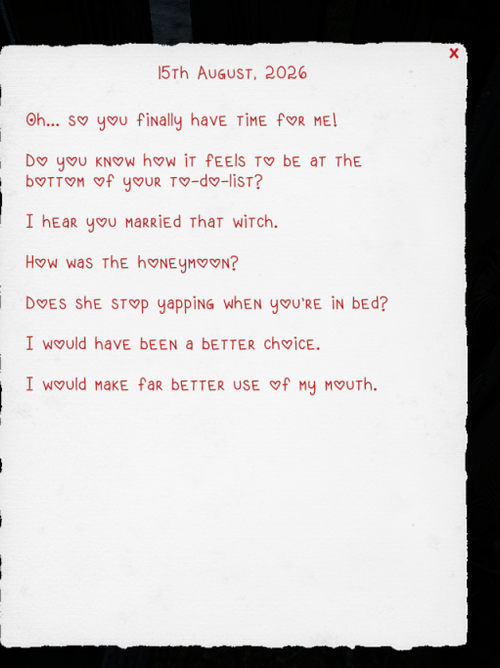 x
15th August, 2026
Oh... so you finally have time for me!
Do you know how it feels to be at the
bottom of your to-do-list?
I hear you married that witch.
How was the honeymoon?
Does she stop yapping when you're in bed?
I would have been a better choice.
I would make far better use of my mouth.